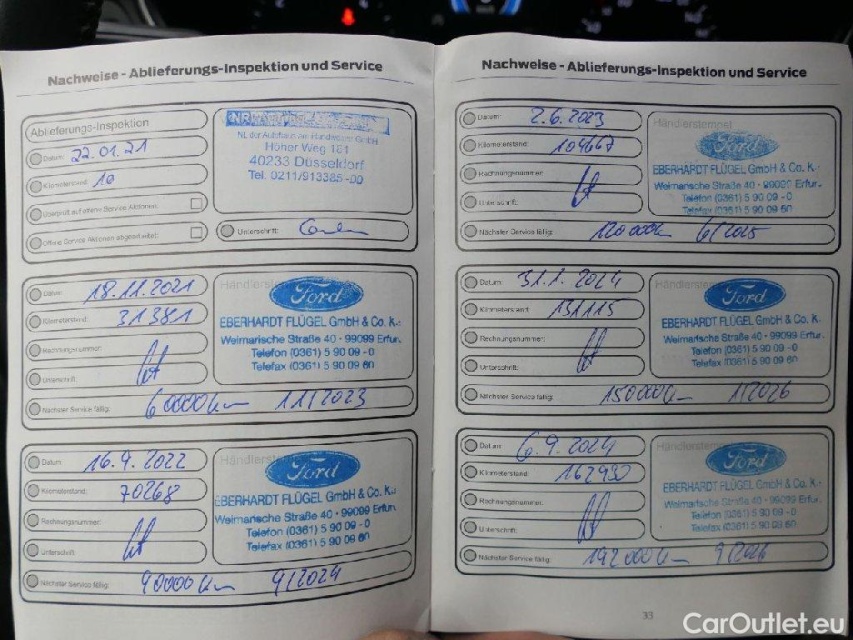 Nachweise - Ablieferungs-Inspektion und Service
Ablieferungs-Inspektion
Datum: 22.01.21
Kilometerstand: 10
Überprüft auf offene Service Aktionen:
Offene Service Aktionen abgearbeitet:
NL der Autohaus am Handweiser GmbH
Höher Weg 181
40233 Düsseldorf
Tel. 0211/913385-00
Unterschrift:
Datum: 18.11.2021
Kilometerstand: 31381
Rechnungsnummer:
Unterschrift:
Nächster Service fällig: 60000 km 11/2023
Ford
EBERHARDT FLÜGEL GmbH & Co. K.
Weimarische Straße 40 - 99099 Erfur.
Telefon (0361) 5 90 09 - 0
Telefax (0361) 5 90 09 60
Datum: 16.9.2022
Kilometerstand: 70268
Rechnungsnummer:
Unterschrift:
Nächster Service fällig: 90000 km 9/2024
Ford
EBERHARDT FLÜGEL GmbH & Co. K.
Weimarische Straße 40 - 99099 Erfur.
Telefon (0361) 5 90 09 - 0
Telefax (0361) 5 90 09 60
Nachweise - Ablieferungs-Inspektion und Service
Datum: 2.6.2023
Kilometerstand: 104667
Rechnungsnummer:
Unterschrift:
Nächster Service fällig: 120000 km 6/2025
Händlerstempel
Ford
EBERHARDT FLÜGEL GmbH & Co. K.
Weimarische Straße 40 - 99099 Erfur.
Telefon (0361) 5 90 09 - 0
Telefax (0361) 5 90 09 60
Datum: 31.1.2024
Kilometerstand: 131115
Rechnungsnummer:
Unterschrift:
Nächster Service fällig: 150000 km 1/2026
Ford
EBERHARDT FLÜGEL GmbH & Co. K.
Weimarische Straße 40 - 99099 Erfur.
Telefon (0361) 5 90 09 - 0
Telefax (0361) 5 90 09 60
Datum: 6.9.2024
Kilometerstand: 162932
Rechnungsnummer:
Unterschrift:
Nächster Service fällig: 192000 km 9/2026
Ford
EBERHARDT FLÜGEL GmbH & Co. K.
Weimarische Straße 40 - 99099 Erfur.
Telefon (0361) 5 90 09 - 0
Telefax (0361) 5 90 09 60
33
CarOutlet.eu